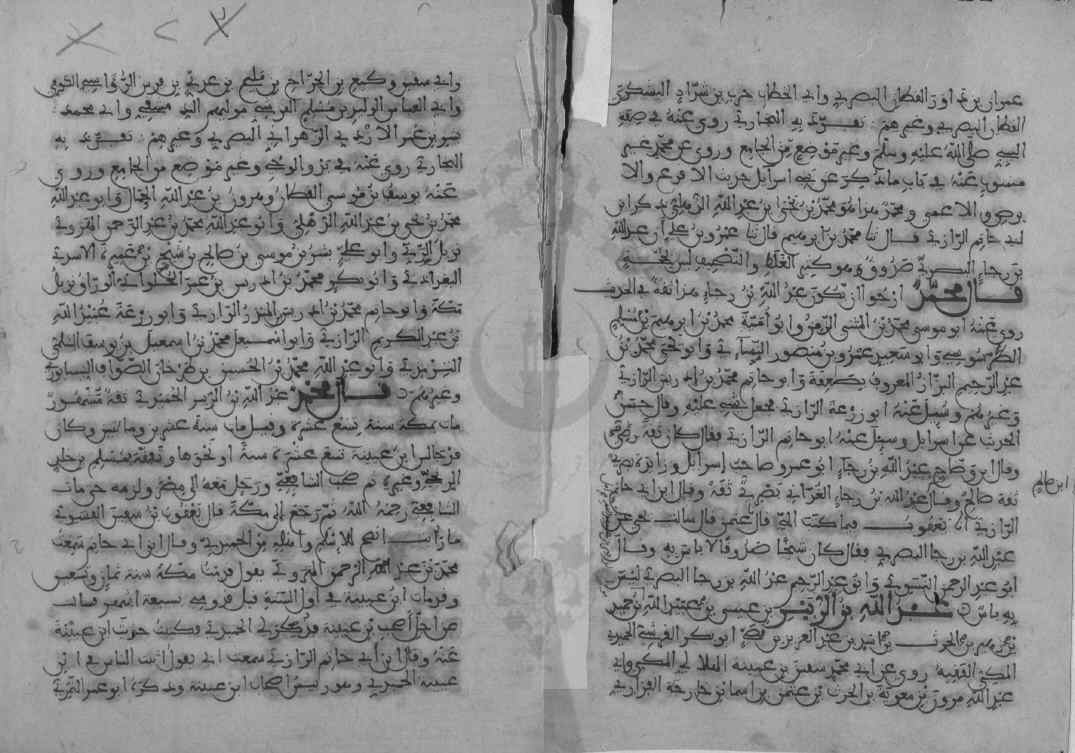 عمران بن داور القطان البصري وابي الخطاب حرب بن شداد اليشكري
القطان البصري وغيرهم تفرد به البخاري روى عنه في صفة
النبي صلى الله عليه وسلم وغير موضع من الجامع وروى عن محمد غير
منسوب عنه في باب ما ذكر عن بني اسرايل حديث الاقرع والا
برص والاعمى ومحمد هذا هو محمد بن يحيى بن عبد الله الذهلي ذكر ابن
ابي حاتم الرازي قال نا محمد بن ابراهيم قال نا عمرو بن علي ان عبد الله
بن رجاء البصري صدوق وهو كثير الغلط والتصحيف ليس بحجة
قال محمد ارجو ان يكون عبد الله بن رجاء هذا ثقة في الحديث
روى عنه ابو موسى محمد بن المثنى الزمن وابو امية محمد بن ابراهيم بن مسلم
الطرسوسي وابو سعيد عمرو بن منصور النسائي وابو يحيى محمد بن
عبد الرحيم البزاز المعروف بصاعقة وابو حاتم محمد بن ادريس الرازي
وغيرهم وسئل عنه ابو زرعة الرازي فجعل يثني عليه وقال حسن
الحديث عن اسرايل وسئل عنه ابو حاتم الرازي فقال كان ثقة رضى
وقال ابن وضاح عبد الله بن رجاء ابو عمرو صاحب إسرايل وزايدة بصري
ثقة صالح وقال عبد الله بن رجاء الغداني بصري ثقة وقال ابن ابي حاتم
الرازي نا يعقوب فيما كتب الي قال نا عثمن قال سالت يحيى عن
عبد الله بن رجا البصري فقال كان شيخا صدوقا لا باس به وقال
ابو عبد الرحمن النسوي وابو عبد الرحيم عبد الله بن رجا البصري ليس
به باس عبد الله بن الزبير بن عيسى بن عبيد الله بن حميد
بن زهير بن الحرث بن اسد بن عبد العزى بن قصي ابو بكر القرشي الحميدي
المكي الفقيه روى عن ابي محمد سفين بن عيينة الهلالي المكي وابي
عبد الله مروان بن معوية بن الحرث بن عثمن بن اسما بن خارجة الفزاري
ابن حاتم
وابي سفين وكيع بن الجراح بن مليح بن عدي بن فرس الرؤاسي الكوفي
وابي العباس الوليد بن مسلم القرشي مولاهم الدمشقي وابي محمد
بشر بن عمر الازدي الزهراني البصري وغيرهم تفرد به
البخاري روى عنه في بدو الوحي وغير موضع من الجامع وروى
عنه يوسف بن موسى القطان وهرون بن عبد الله الحمال وابو عبد الله
محمد بن يحيى بن عبد الله الذهلي وابو عبد الله محمد بن عبد الرحمن الهروي
نزيل الري وابو علي بشر بن موسى بن صالح بن شيخ بن عميرة الاسدي
البغدادي وابو بكر محمد بن ادريس بن عمر الحلواني الوراق نزيل
مكة وابو حاتم محمد بن ادريس بن المنذر الرازي وابو زرعة عبيد الله
بن عبد الكريم الرازي وابو اسمعيل محمد بن اسمعيل بن يوسف السلمي
الترمذي وابو عبد الله محمد بن الحسين بن طرخان الصواف
وغيرهم قال محمد عبد الله بن الزبير الحميدي ثقة مشهور
مات بمكة سنة تسع عشرة وقيل مات سنة عشرين ومايتين وكان
قد جالس ابن عيينة تسع عشرة سنة او نحوها وتفقه بمسلم بن خالد
الزنجي وغيره ثم صحب الشافعي ورحل معه الى مصر ولزمه حتى مات
الشافعي رحمه الله ثم رجع الى مكة قال يعقوب بن سفين الفسوي
ما رايت انصح للاسلام واهله من الحميدي وقال ابن ابي حاتم سمعت
محمد بن عبد الرحمن الهروي يقول قدمت مكة سنة ثمان وتسعين
ومات ابن عيينة في اول السنة قبل قدومي بسبعة اشهر فسالت
عن اجل اصحب بن عيينة فذكر لي الحميدي فكتبت حديث ابن عيينة
عنه وقال ابن ابي حاتم الرازي سمعت ابي يقول اثبت الناس في ابن
عيينة الحميدي وهو رئيس اصحاب ابن عيينة وذكره ابو عمر النمري